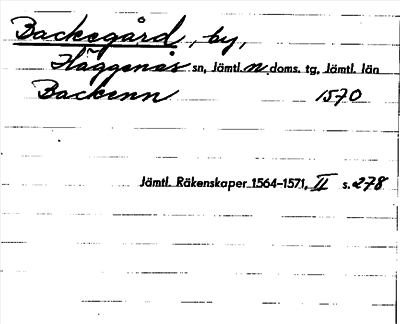 Backegård, by,
Häggenås sn, Jämtl. n. doms. tg, Jämtl. län
Backenn 1570
Jämtl. Räkenskaper 1564–1571, II s. 278